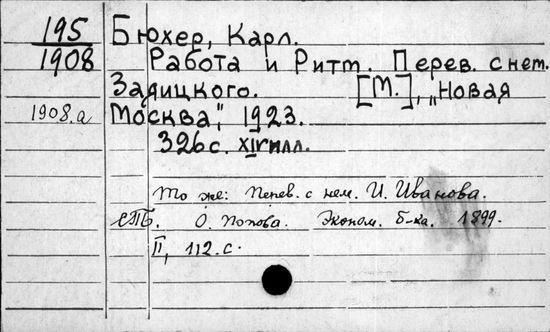 195
1908
1908.a
Бюхер, Карл.
Работа и Ритт. Перев. с нет.
Заяицкого. [М.], „Новая
Москва", 1923.
326 с. XIV илл.
То же: Перев. с нем. И. Иванова.
СПБ. О. Попова. Эконом. б-ка. 1899.
II, 112. с.